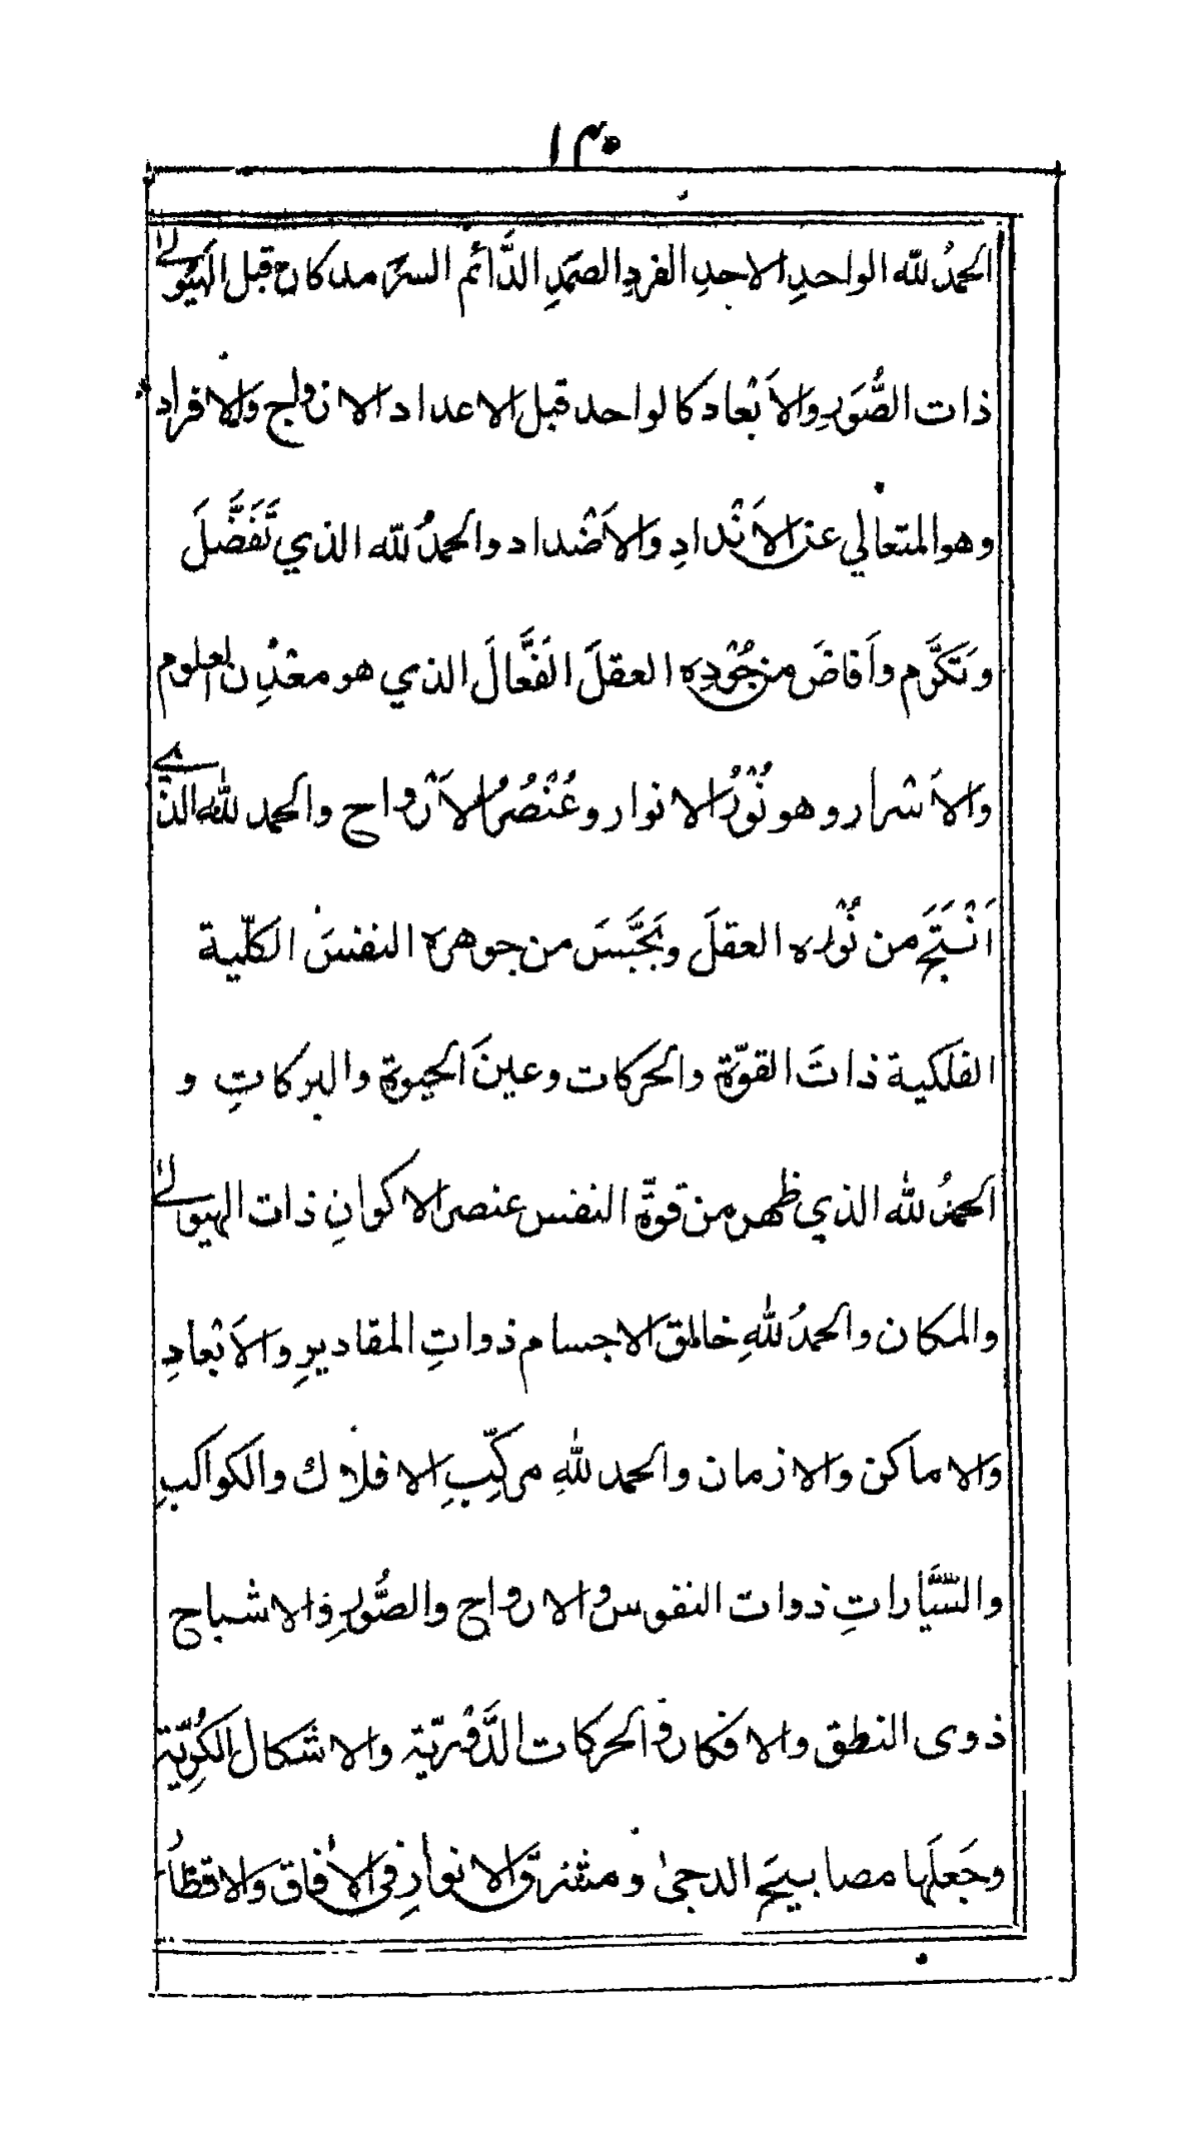 ١٣٥
الحمدُ للّه الواحدِ الاحدِ الفردِ الصمَدِ الدَّائم السرمد كان قبل الهَيُولیٰ
ذات الصُّوَرِ والاَبْعاد كالواحد قبل الاعداد الازواج والافراد
وهو المتعالي عن الاَنْدادِ والاَضْداد والحمدُ للّه الذي تَّفَضَّلَ
وتَكَرَّم واَفاضَ من جُوْدِه العقلَ الفَعَّالَ الذي هو معْدِن العلوم
والاَسْرار وهو نُوْرُ الانوار وعُنْصُرُ الاَرْواح والحمد للّٰه الذے
اَنْتَجَ من نُوْرِه العقلَ وبَجَّسَ من جوهره النفسَ الكلّية
الفلكية ذاتَ القوّة والحركات وعينَ الحيوة والبركاتِ و
الحمدُ للّٰه الذي ظهر من قوّة النفس عنصر الاكوانِ ذات الهيولیٰ
والمكان والحمدُ للّٰهِ خالق الاجسام ذواتِ المقاديرِ والاَبْعادِ
والاماكن والازمان والحمد للّٰهِ مركّبِ الافلاك والكواكبِ
والسَّيَّاراتِ ذوات النفوس والارواح والصُّوَرِ والاشباح
ذوى النطق والافكار والحركات الدَّوْرِيّة والاشكال الكُرِيّة
وجَعلَها مصابيحَ الدجىٰ ومشرق الانوارِ فى الاٰفاق والاقطار